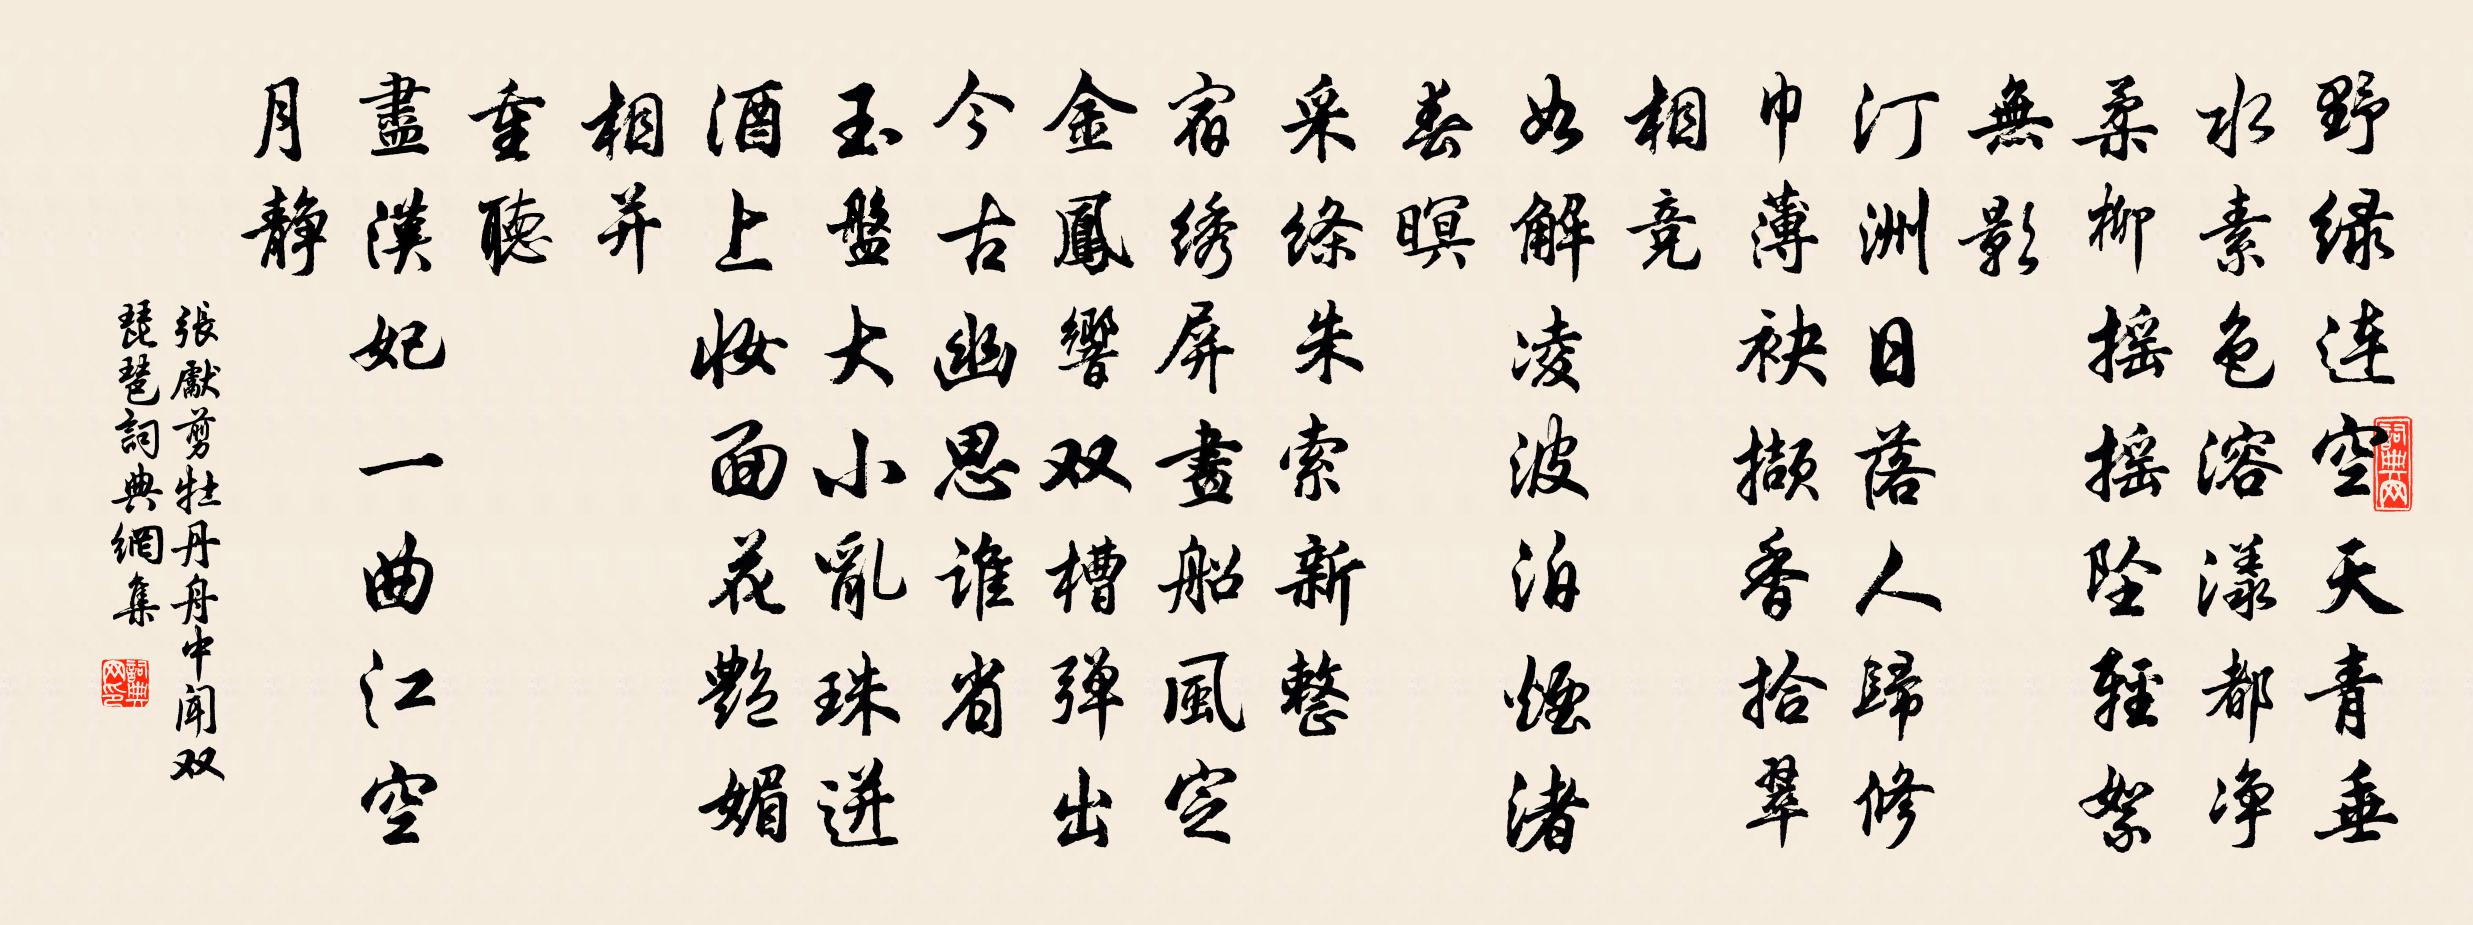 野绿連空天青垂
水素色溶漾都净
柔柳摇摇坠輕絮
無影
汀洲日落人歸修
巾薄袂撷香拾翠
相竞
如解凌波泊煙渚
春暝
采絛朱索新整
宿绣屏畫船風定
金鳳響双槽弹出
今古幽思谁省
玉盤大小亂珠迸
酒上妆面花艷媚
相并
重聽
盡漢妃一曲江空
月静
張獻剪牡丹舟中闻双
琵琶詞典網集
詞典网
詞典网印